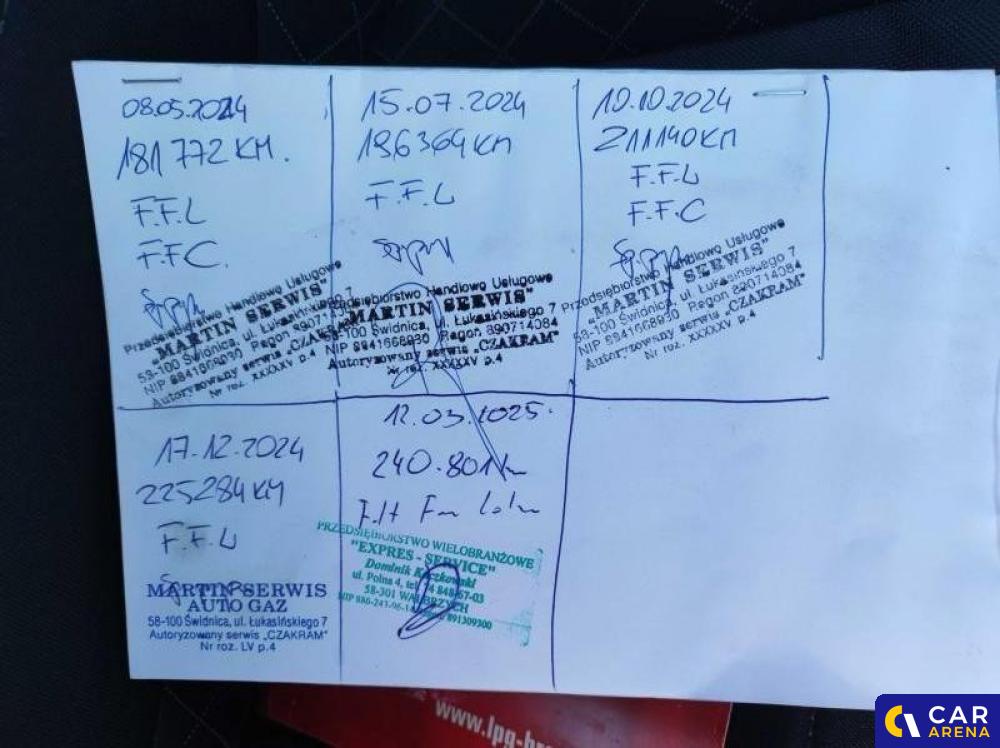 08.05.2024
181 772 KM.
F.F.L
F.F.C.
Przedsiębiorstwo Handlowo Usługowe
"MARTIN SERWIS"
58-100 Świdnica, ul. Łukasińskiego 7
NIP 8841668930 Regon
Autoryzowany serwis „CZAKRAM"
Nr roz. XXXXXV p.4
15.07.2024
196364 KM
F.F.L
Przedsiębiorstwo Handlowo Usługowe
"MARTIN SERWIS"
58-100 Świdnica, ul. Łukasińskiego 7
NIP 8841668930 Regon 890714084
Autoryzowany serwis „CZAKRAM"
Nr roz. XXXXXV p.4
10.10.2024
211140 KM
F.F.L
F.F.C
Przedsiębiorstwo Handlowo Usługowe
„MARTIN SERWIS"
58-100 Świdnica, ul. Łukasińskiego 7
NIP 8841668930 Regon 890714084
Autoryzowany serwis „CZAKRAM"
Nr roz. XXXXXV p.4
17.12.2024
225284 KM
F.F.L
MARTIN SERWIS
AUTO GAZ
58-100 Świdnica, ul. Łukasińskiego 7
Autoryzowany serwis „CZAKRAM"
Nr roz. LV p.4
12.03.2025.
240.801 km
PRZEDSIĘBIORSTWO WIELOBRANŻOWE
"EXPRES - SERVICE"
Dominik
ul. Polna 4, tel. 74 848-67-03
58-301 WAŁBRZYCH
891309300
www.lpg-
CAR
ARENA